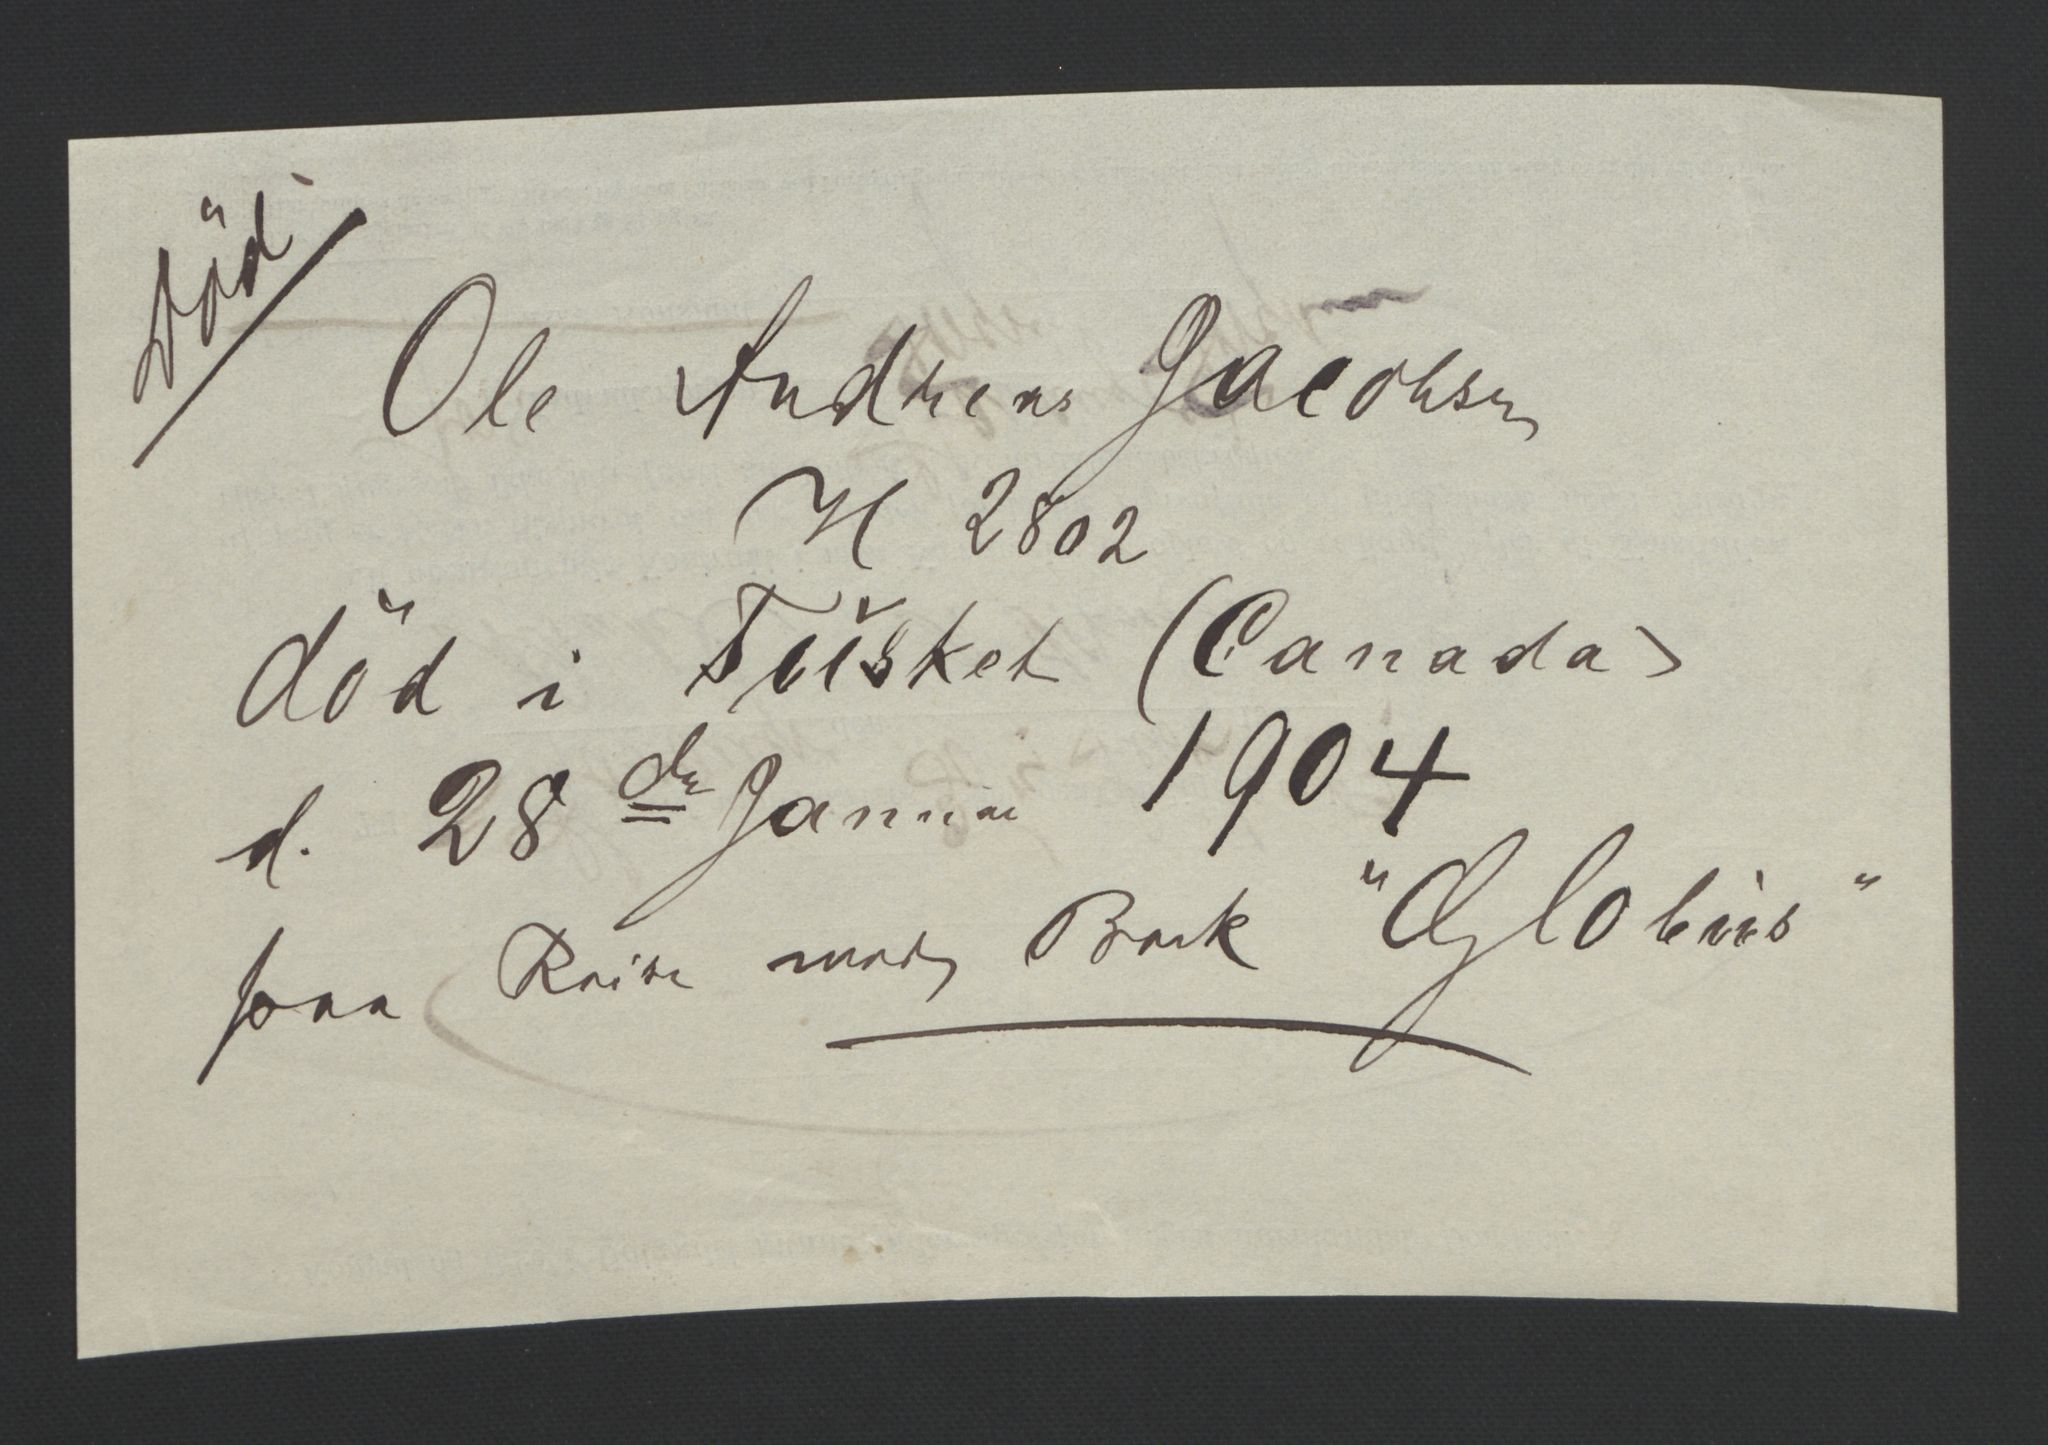 Död
Ole Andreas Jacobsen
N 2802
död i Tŭsket (Canada)
d. 28de Januar 1904
paa Reise med Bark "Globŭs"